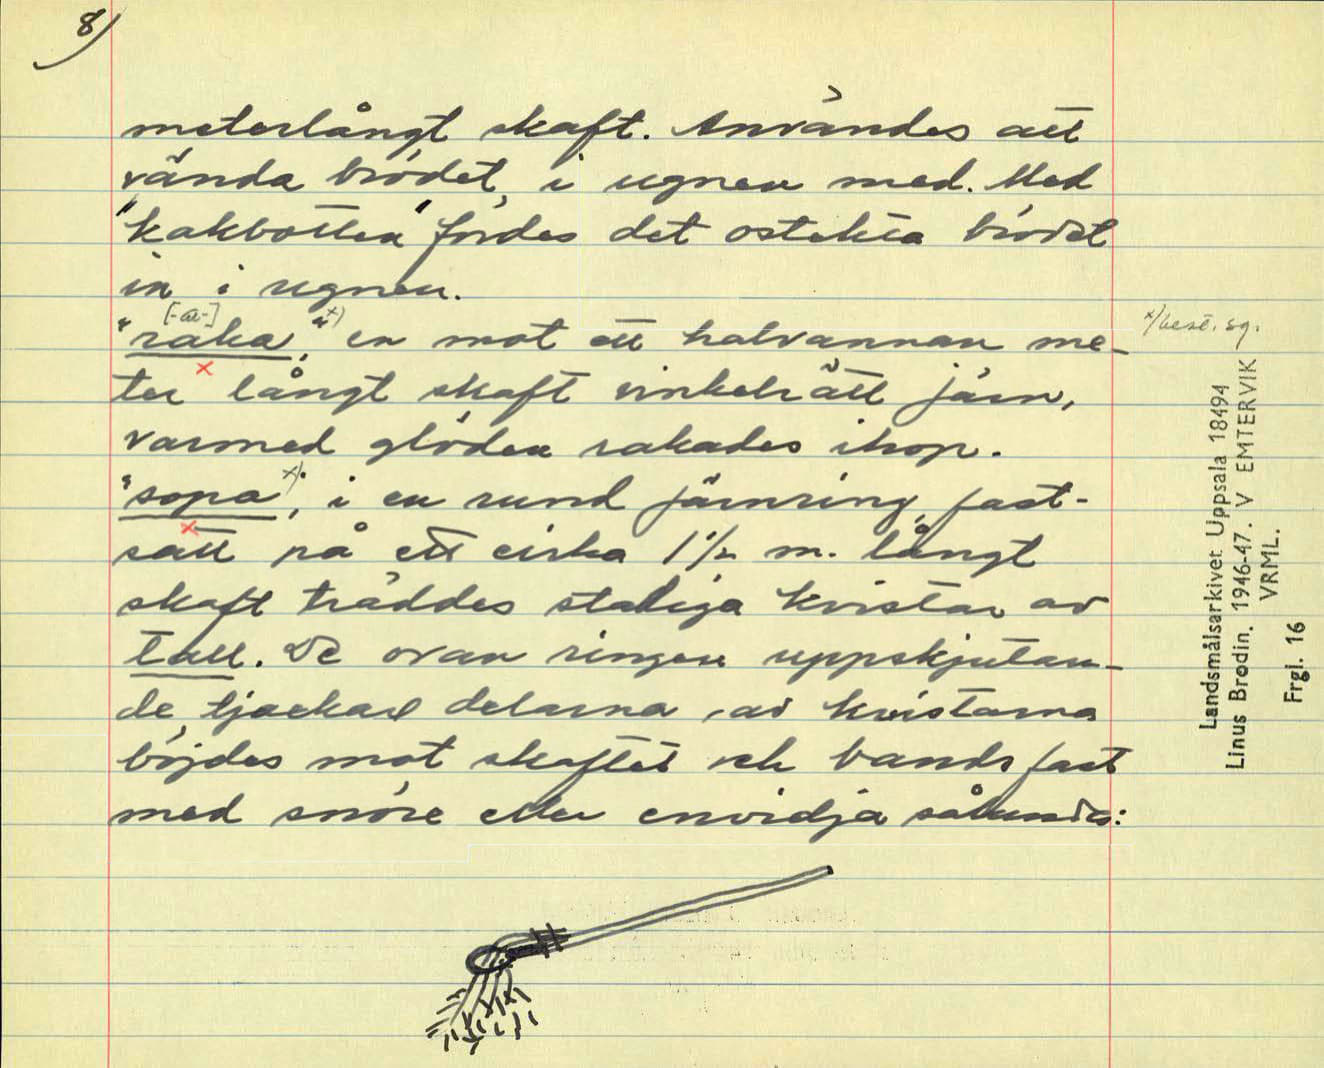 8)
meterlångt skaft. Användes att
vända brödet i ugnen med. Med
"kakbotten" fördes det ostekta brödet
in i ugnen.
[-a-]
"raka", x) en mot ett halvannan me-
x) best. sg.
ter långt skaft vinkelrätt järn,
varmed glöden rakades ihop.
"sopa" x), i en rund järnring, fast-
satt på ett cirka 1 1/2 m. långt
skaft träddes stabiga kvistar av
tall. De ovan ringen uppskjutan-
de, tjockare delarna av kvistarna
böjdes mot skaftet och bands fast
med snöre eller envidja sålunda:
Landsmålsarkivet Uppsala 18494
Linus Brodin. 1946-47. V EMTERVIK
VRML.
Frgl. 16